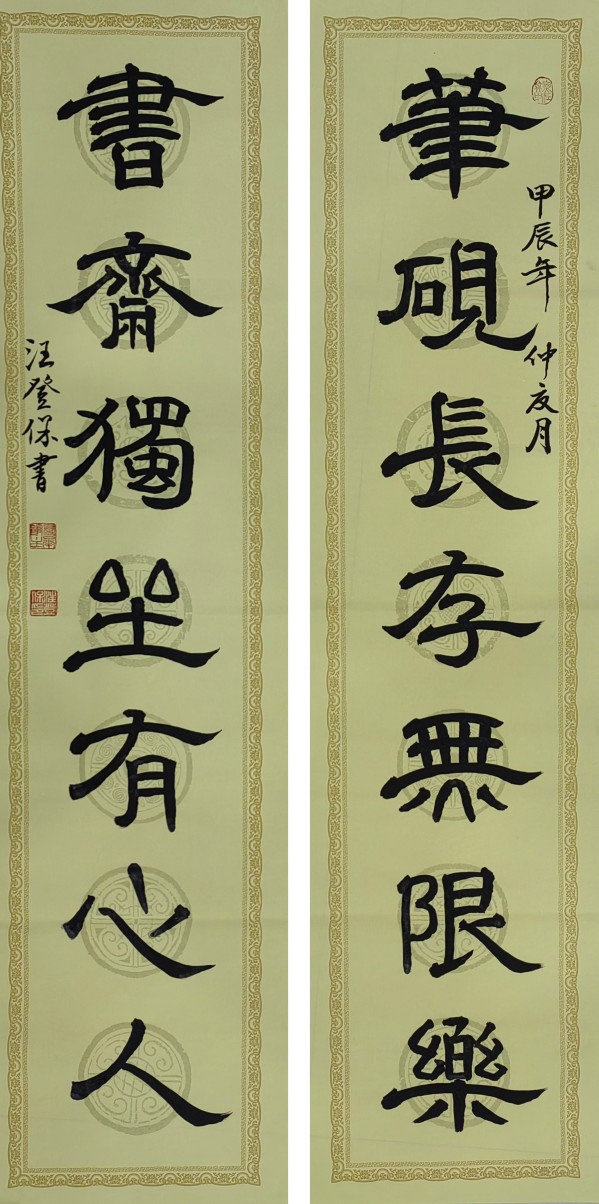 甲辰年 仲夏月
筆硯長存無限樂
書齋獨坐有心人
汪登保書